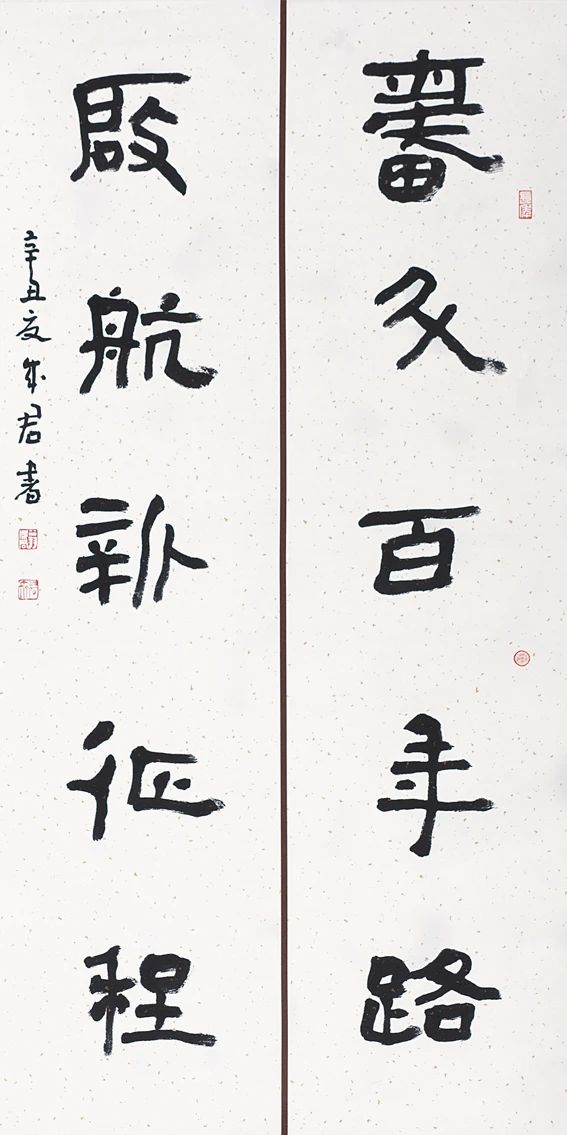 奮斗百年路
啟航新征程
辛丑夏成君書